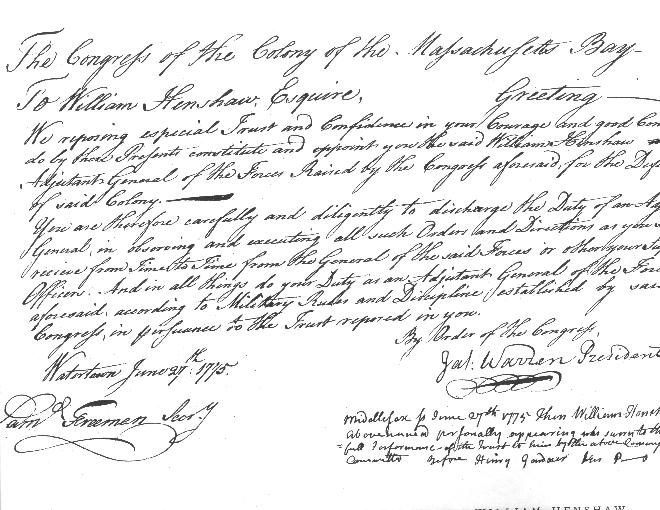 The Congress of the Colony of the Massachusetts Bay
To William Henshaw, Esquire, Greeting
We reposing especial Trust and Confidence in your Courage and good Con
do by these Presents constitute and appoint you the said William Henshaw
Adjutant General of the Forces Raised by the Congress aforesaid, for the Def
of said Colony.
You are therefore carefully and diligently to discharge the Duty of an Adj
General, in observing and executing all such Orders and Directions as you s
recieve from Time to Time from the General of the said Forces or other your Su
Officers. And in all things do your Duty as an Adjutant General of the Forc
aforesaid, according to Military Rules and Discipline established by said
Congress, in persuance to the Trust reposed in you.
By Order of the Congress,
Jas. Warren President
Watertown June 27.th 1775.
Sam.l Freeman Secr.y
Middlesex ss June 27th 1775 Then William Hensh
Abovenamed personally appearing was sworn to the
full Performance of the Trust to him by the above Commis
Committed Before Henry Gardner
WILLIAM HENSHAW